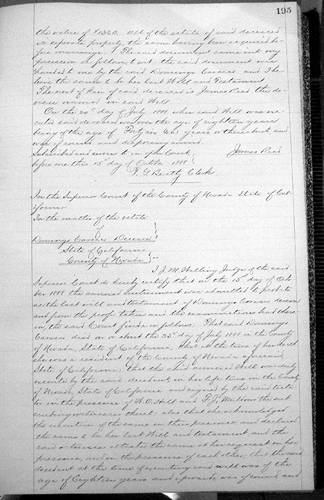 195
the value of $1360. All of the estate of said deceased
is seperate property, the same having been acquired be-
fore marriage. The said document came into my
possession as follows to wit. The said document was
handed to me by said Domingo Cavires and I be-
lieve the same to be his last Will and Testament
The next of kin of said deceased is James Reed the de-
visee named in said Will.
On the day of July 1888 when said Will was exe-
cuted said deceased was over the age of eighteen years
being of the age of years or thereabout and
was of sound and disposing mind
Subscribed and sworn to in open Court James Reed
before me this 15th day of Octbr 1888
F. G. Beatty Clerk
In the Superior Court of the County of Nevada State of Cal-
ifornia
In the matter of the estate
of
Domingo Cavires Deceased
State of California
County of Nevada
I J. M. Walling Judge of the said
Superior Court do hereby certify that on the 15th day of Octo-
ber 1888 the annexed instrument was admitted to probate
as the last will and testament of Domingo Cavires deceased
and from the proofs taken and the examination had therein
the said Court finds as follows. That said Domingo
Cavires died on or about the day of July 1888 in the County
of Nevada, State of California. That at the time of his death
he was a resident of the County of Nevada aforesaid
State of California; that the said annexed will was duly
executed by the said decedent in his life time in the County
of Nevada State of California and signed by the said testa-
tor in the presence of Hill and Watson the sub-
scribing witnesses thereto; also that he acknowledged
the execution of the same in their presence and declared
the same to be his last Will and testament and the
said witnesses attested the same at his request in his
presence, and in the presence of each other, that the said
decedent at the time of executing said will was of the
age of Eighteen years and upwards, was of sound and